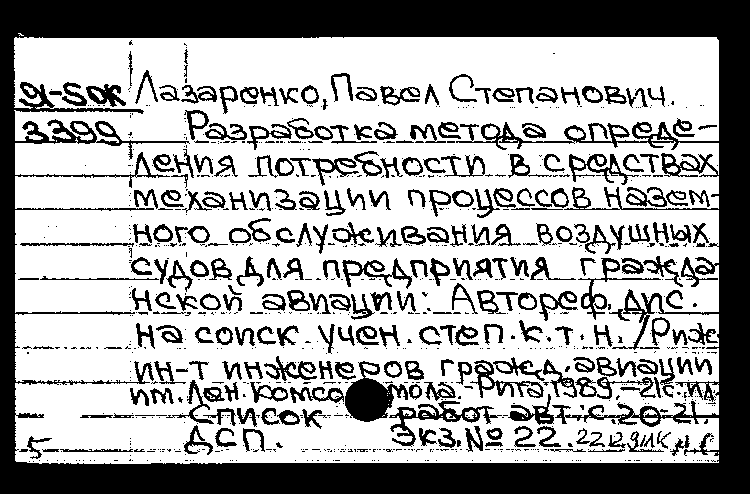 91-5ОК Лазаренко, Павел Степанович.
3399 Разработка метода опреде-
ления потребности в средствах
механизации процессов назем-
ного обслуживания воздушных
судов для предприятия гражда-
нской авиации: Автореф. дис.
на соиск. учен. степ. к.т.н. / Риж.
ин-т инженеров гражд. авиации
им. Лен. комсомола - Рига, 1989. - 21с.: ил.
Список работ авт.: с. 20-21.
5 ДСП. Экз. № 22.